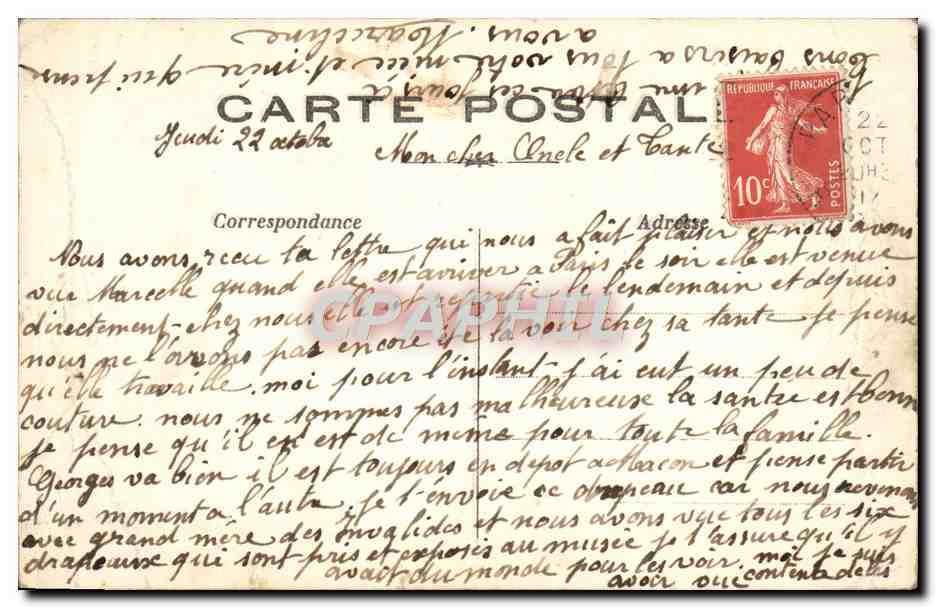 CARTE POSTALE
RÉPUBLIQUE FRANÇAISE
10c
POSTES
22
OCT
Jeudi 22 octobre
Mon cher Oncle et Tante
Correspondance
Adresse
Nous avons reçu ta lettre qui nous a fait plaisir et nous avons
vue Marcelle quand elle est arriver a Paris le soir elle est venue
directement chez nous elle est repartie le lendemain et depuis
nous ne l'avons pas encore été la voir chez sa tante je pense
qu'elle travaille. moi pour l'instant j'ai eut un peu de
couture. nous ne sommes pas malheureuse la santee est bonne
je pense qu'il en est de même pour toute la famille.
Georges va bien il est toujours en depot a Macon et pense partir
d'un moment a l'autre, je t'envoie ce drapeau car nous revenons
avec grand mére des Invalides et nous avons vue tous les six
drapeaux qui sont pris et exposés au musée je t'assure qu'il y
avait du monde pour les voir. moi je suis
contente de les
avoir vue
bons baisers a tous votre niéce et mère qui pense
a vous. Marcelline
CPAPHIL